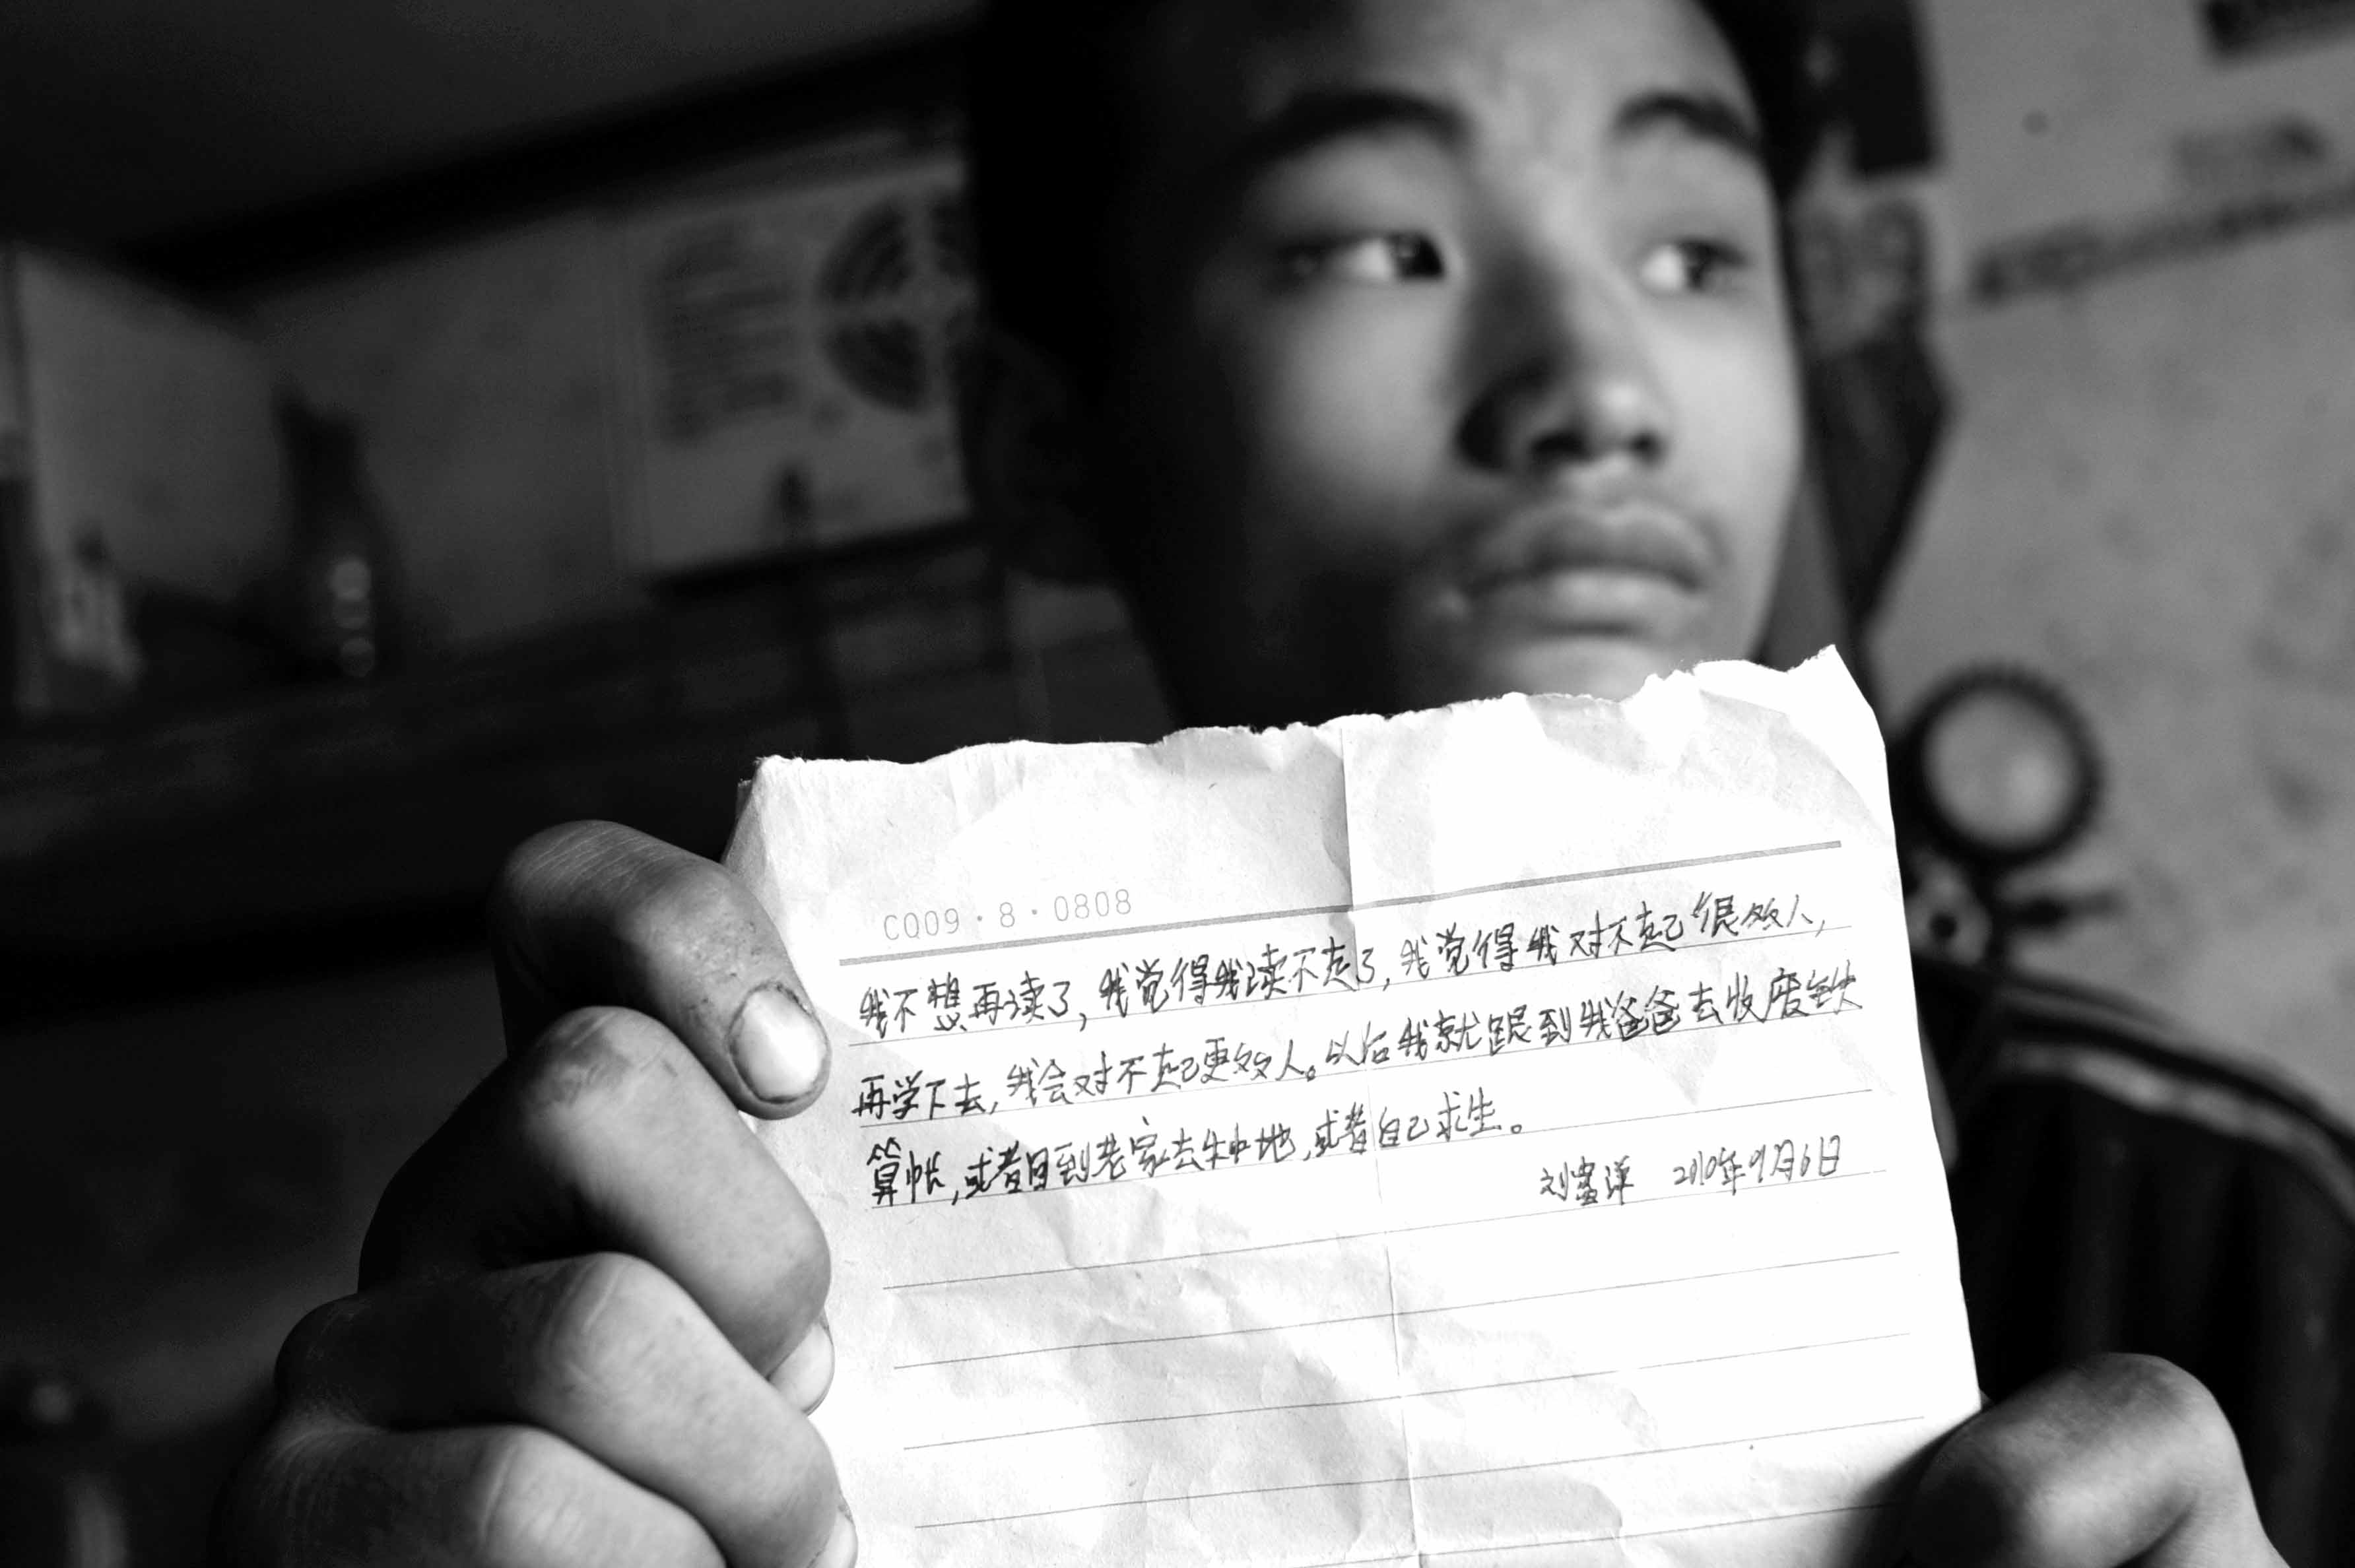 CQ09·8·0808
我不想再读了,我觉得我读不走了,我觉得我对不起很多人,
再学下去,我会对不起更多人。以后我就跟到我爸爸去收废铁
算帐,或者回到老家去种地,或者自己求生。
刘富洋 2010年9月6日